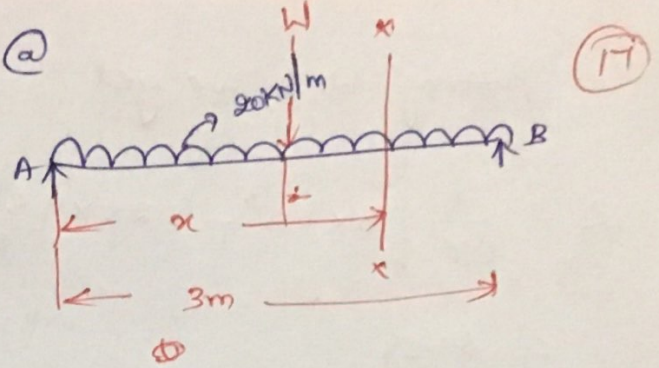 W
x
@
17
20KN/m
A
B
x
x
3m